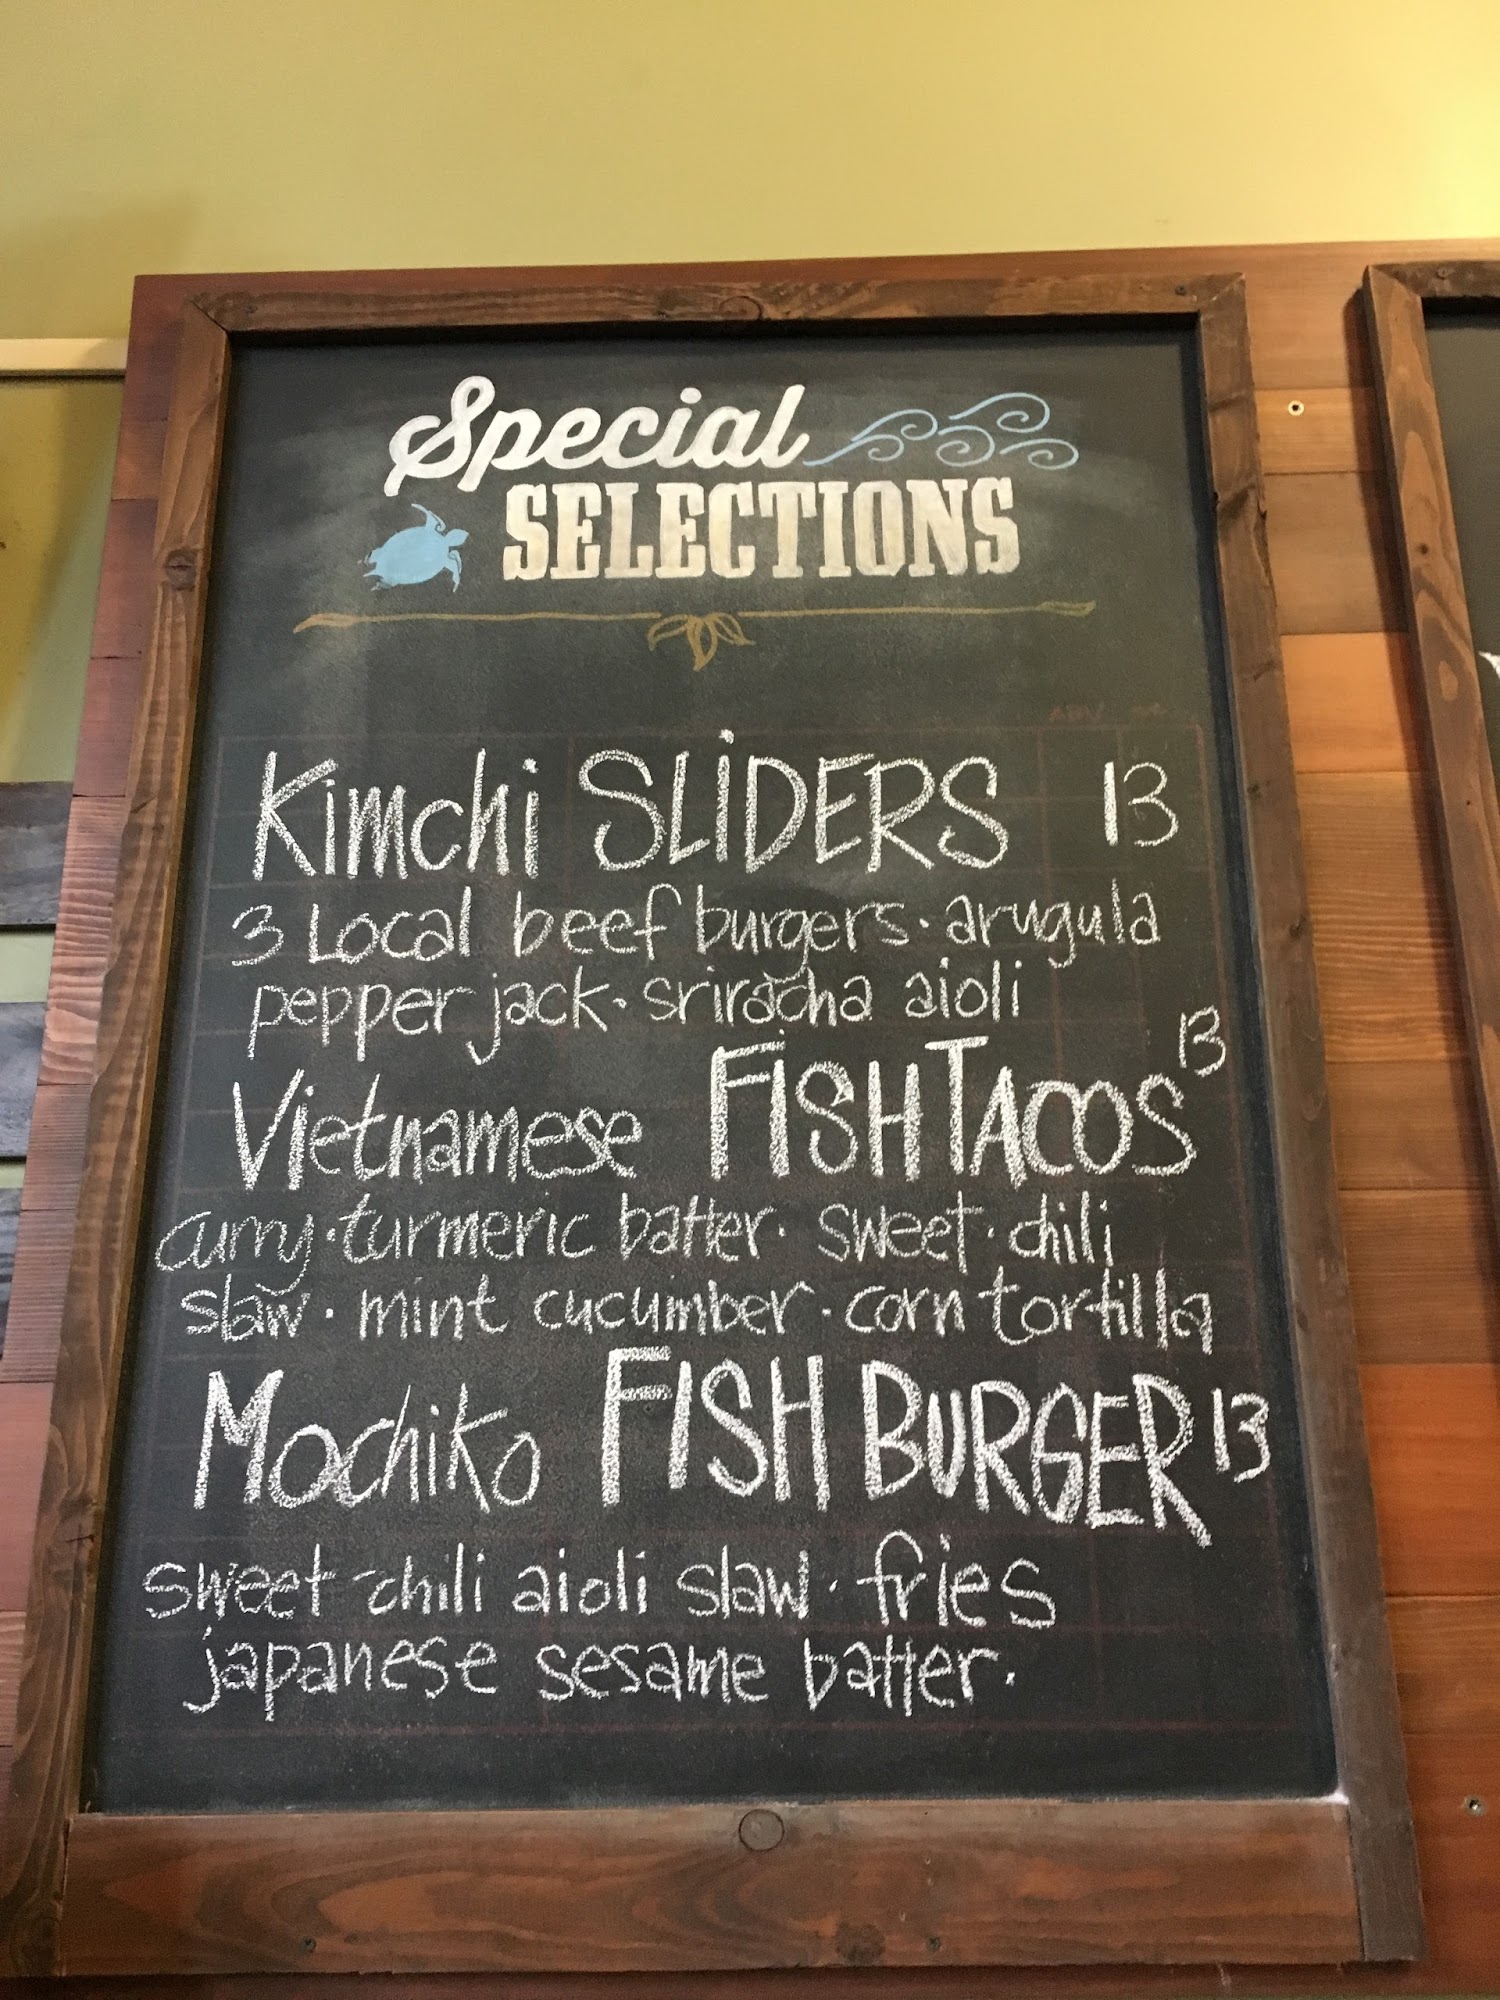 Special
SELECTIONS
Kimchi SLiDERS 13
3 Local beef burgers · arugula
pepper jack · sriracha aioli
Vietnamese FiSH TACOS 13
curry · turmeric batter · sweet · chili
slaw · mint cucumber · corn tortilla
Mochiko FISH BURGER 13
sweet-chili aioli slaw · fries
japanese sesame batter.